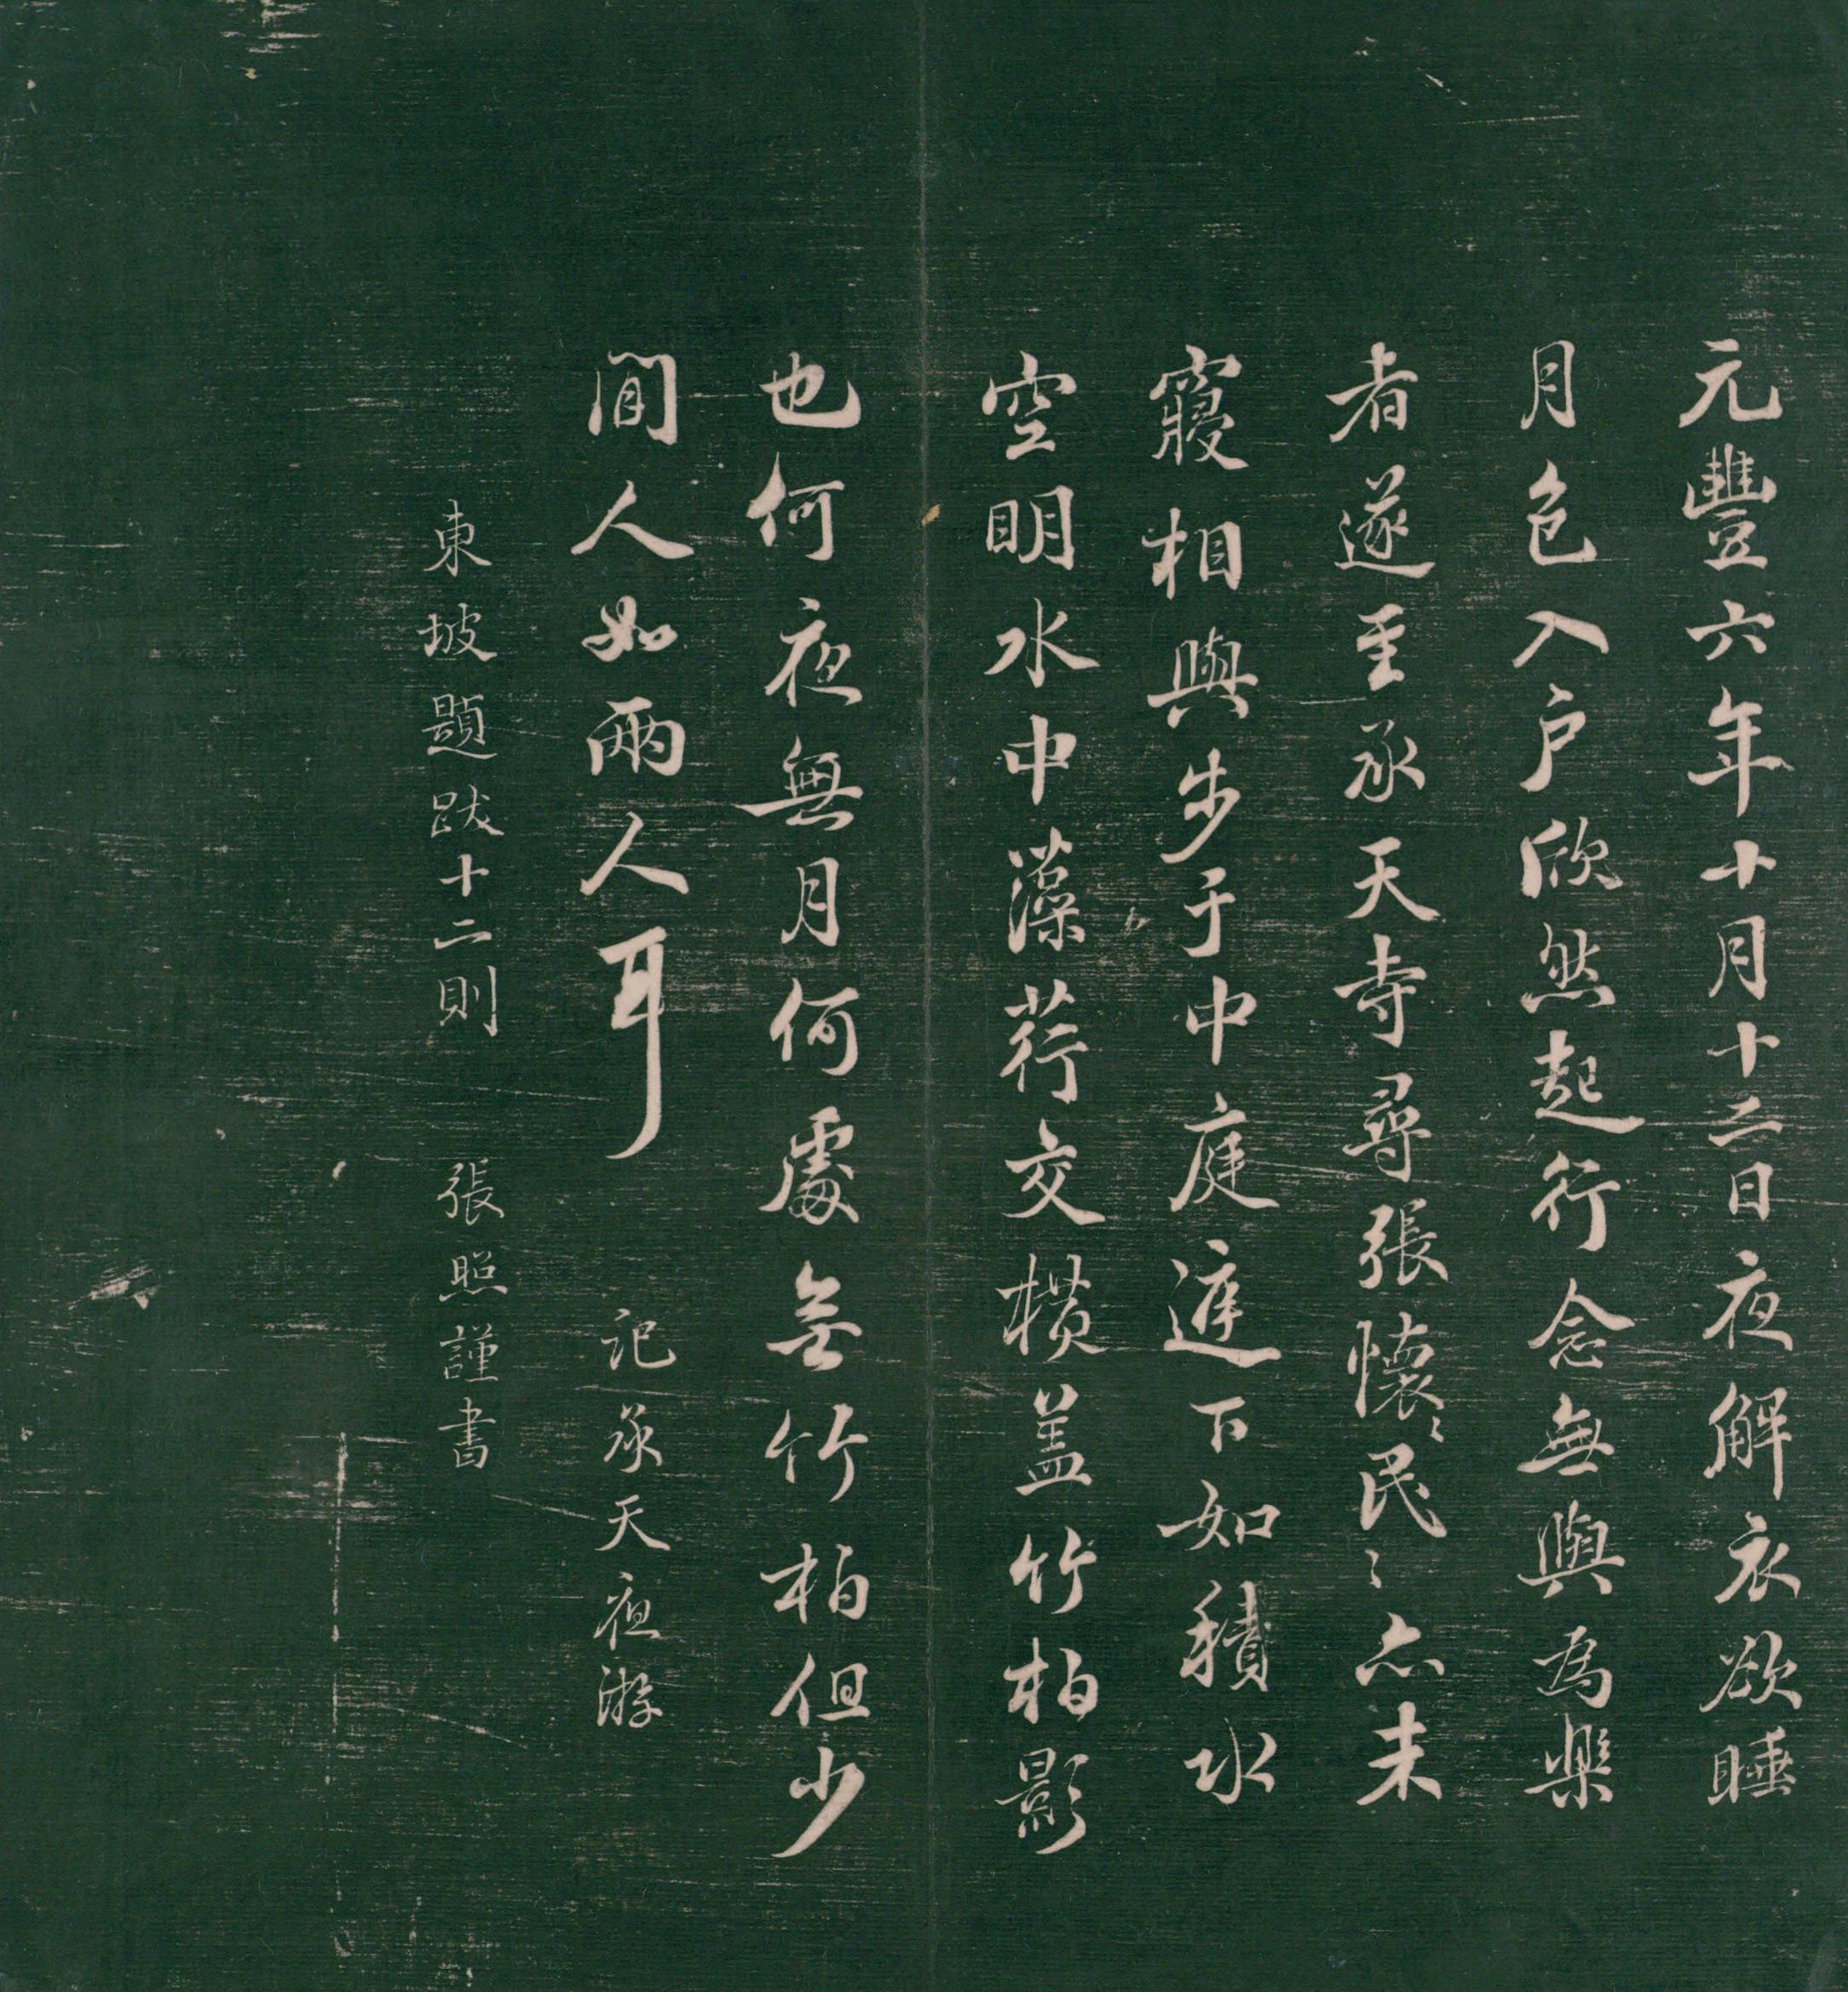 元豐六年十月十二日夜解衣欲睡
月色入戶欣然起行念無與為樂
者遂至承天寺尋張懷〻民〻亦未
寢相與步于中庭〻下如積水
空明水中藻荇交橫蓋竹柏影
也何夜無月何處無竹柏但少
閒人如兩人耳 記承天夜游
東坡題跋十二則 張照謹書